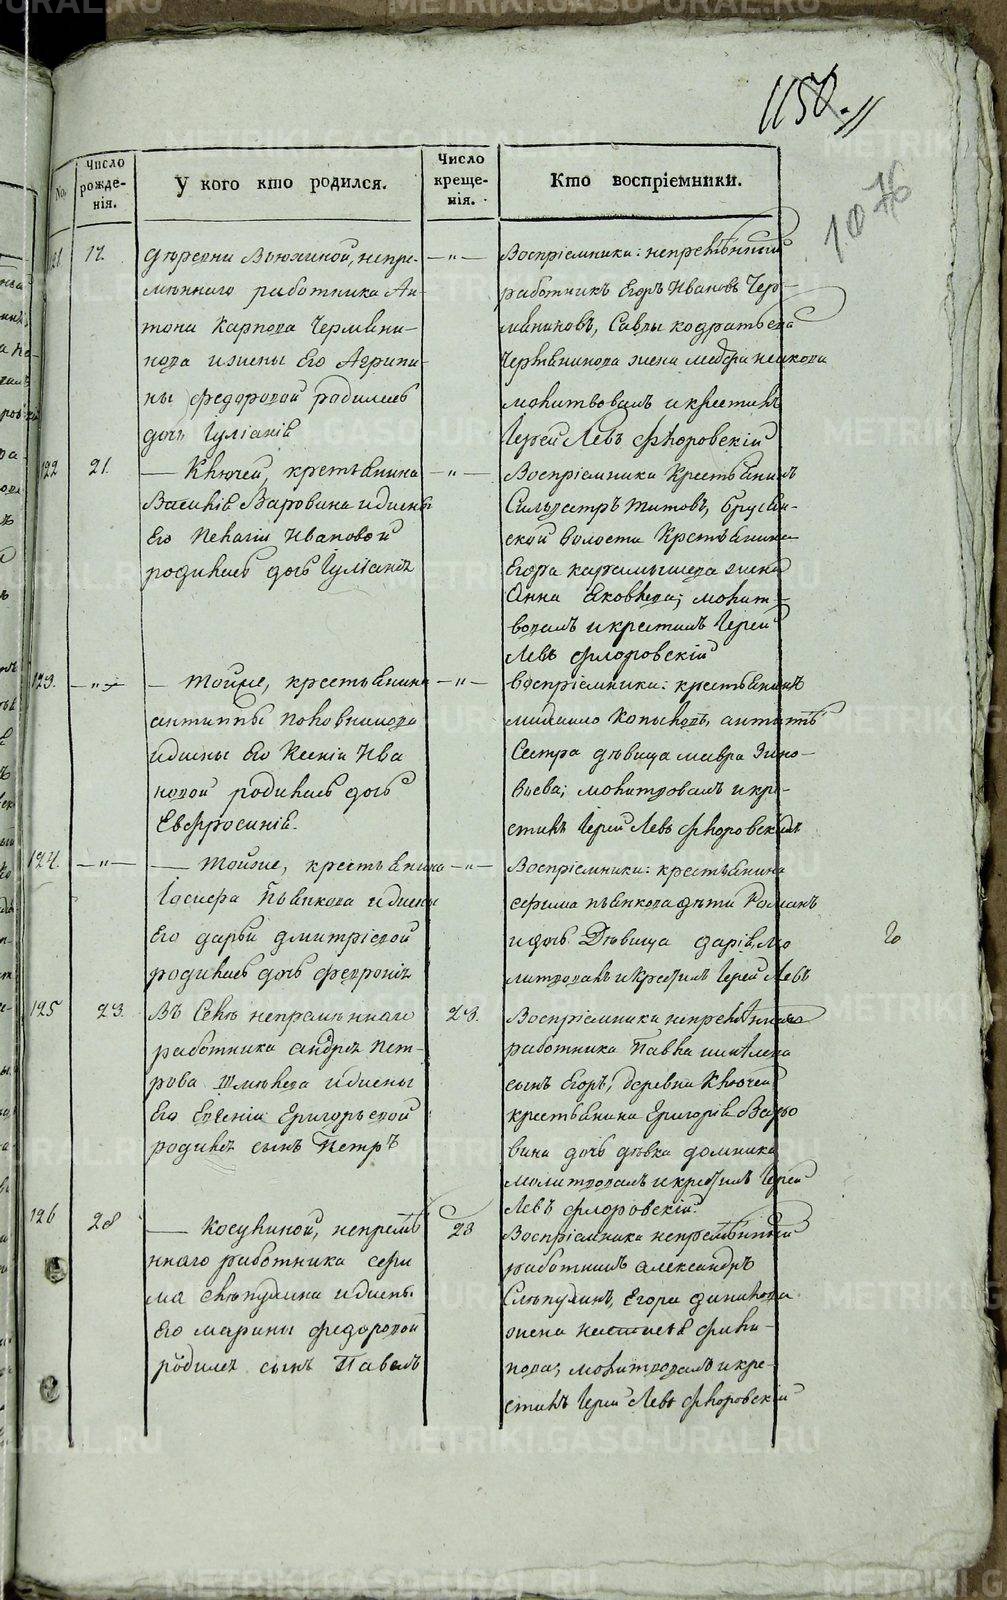 1150.
1076
№
Число рожде-нія.
У кого кто родился.
Число креще-нія.
Кто воспріемники.
121 17. деревни Вьюхиной, непре-
мѣннаго работника Ан-
тона Карпова Чермяни-
нова и жены его Агрипи-
ны Федоровой родилась
дочь Іуліанія
—"—
Воспріемники: непремѣнный
работникъ Егоръ Ивановъ Чер-
мяниновъ, Савы Кодратьева
Чермянинова жена
молитвовалъ и крестилъ
Іерей Левъ Флоровскій
122 21. — Ключей, крестьянина
Василія Варовина и жены
его Пелагіи Ивановой
родилась дочь Іуліанія
—"—
Воспріемники Крестьянинъ
Сильвестръ Титовъ,
ской волости Крестьянина
Егора жена
Анна Яковлева; молит-
вовалъ и крестилъ Іерей
Левъ Флоровскій
123. —"— — Тойже, крестьянина
Антипы Половникова
и жены его Ксеніи Ива
новой родилась дочь
Евфросинія.
—"—
Воспріемники: крестьянинъ
Михаило Копыловъ, Антипы
сестра дѣвица Мавра Зино-
вьева; молитвовалъ и кре-
стилъ Іерей Левъ Флоровскій
124. —"— — Тойже, крестьянина
Іосифа Пьянкова и жены
его Дарьи Дмитріевой
родилась дочь Февронія
—"—
Воспріемники: крестьянина
Ефима Пьянкова дѣти Романъ
и дочь Дѣвица Дарія, мо
литвовалъ и крестилъ Іерей Левъ
125 23. Въ Селѣ непремѣннаго
работника Андрея Пет-
рова Шмѣлева и жены
его Евгеніи Григорьевой
родился сынъ Петръ
23.
Воспріемники непремѣннаго
работника Павла Шмѣлева
сынъ Егоръ, деревни Ключей
крестьянина Григорія Варо
вина дочь дѣвка Домника
молитвовалъ и крестилъ Іерей
Левъ Флоровскій.
126 28 — Косулиной, непремѣ
ннаго работника Ефи
ма Слѣпухина и жены
его Марины Федоровой
родился сынъ Павелъ
28
Воспріемники непремѣнный
работникъ Александръ
Слѣпухинъ, Егора
жена Настасья Фили-
пова; молитвовалъ и кре-
стилъ Іерей Левъ Флоровскій
METRIKI.GASO-URAL.RU